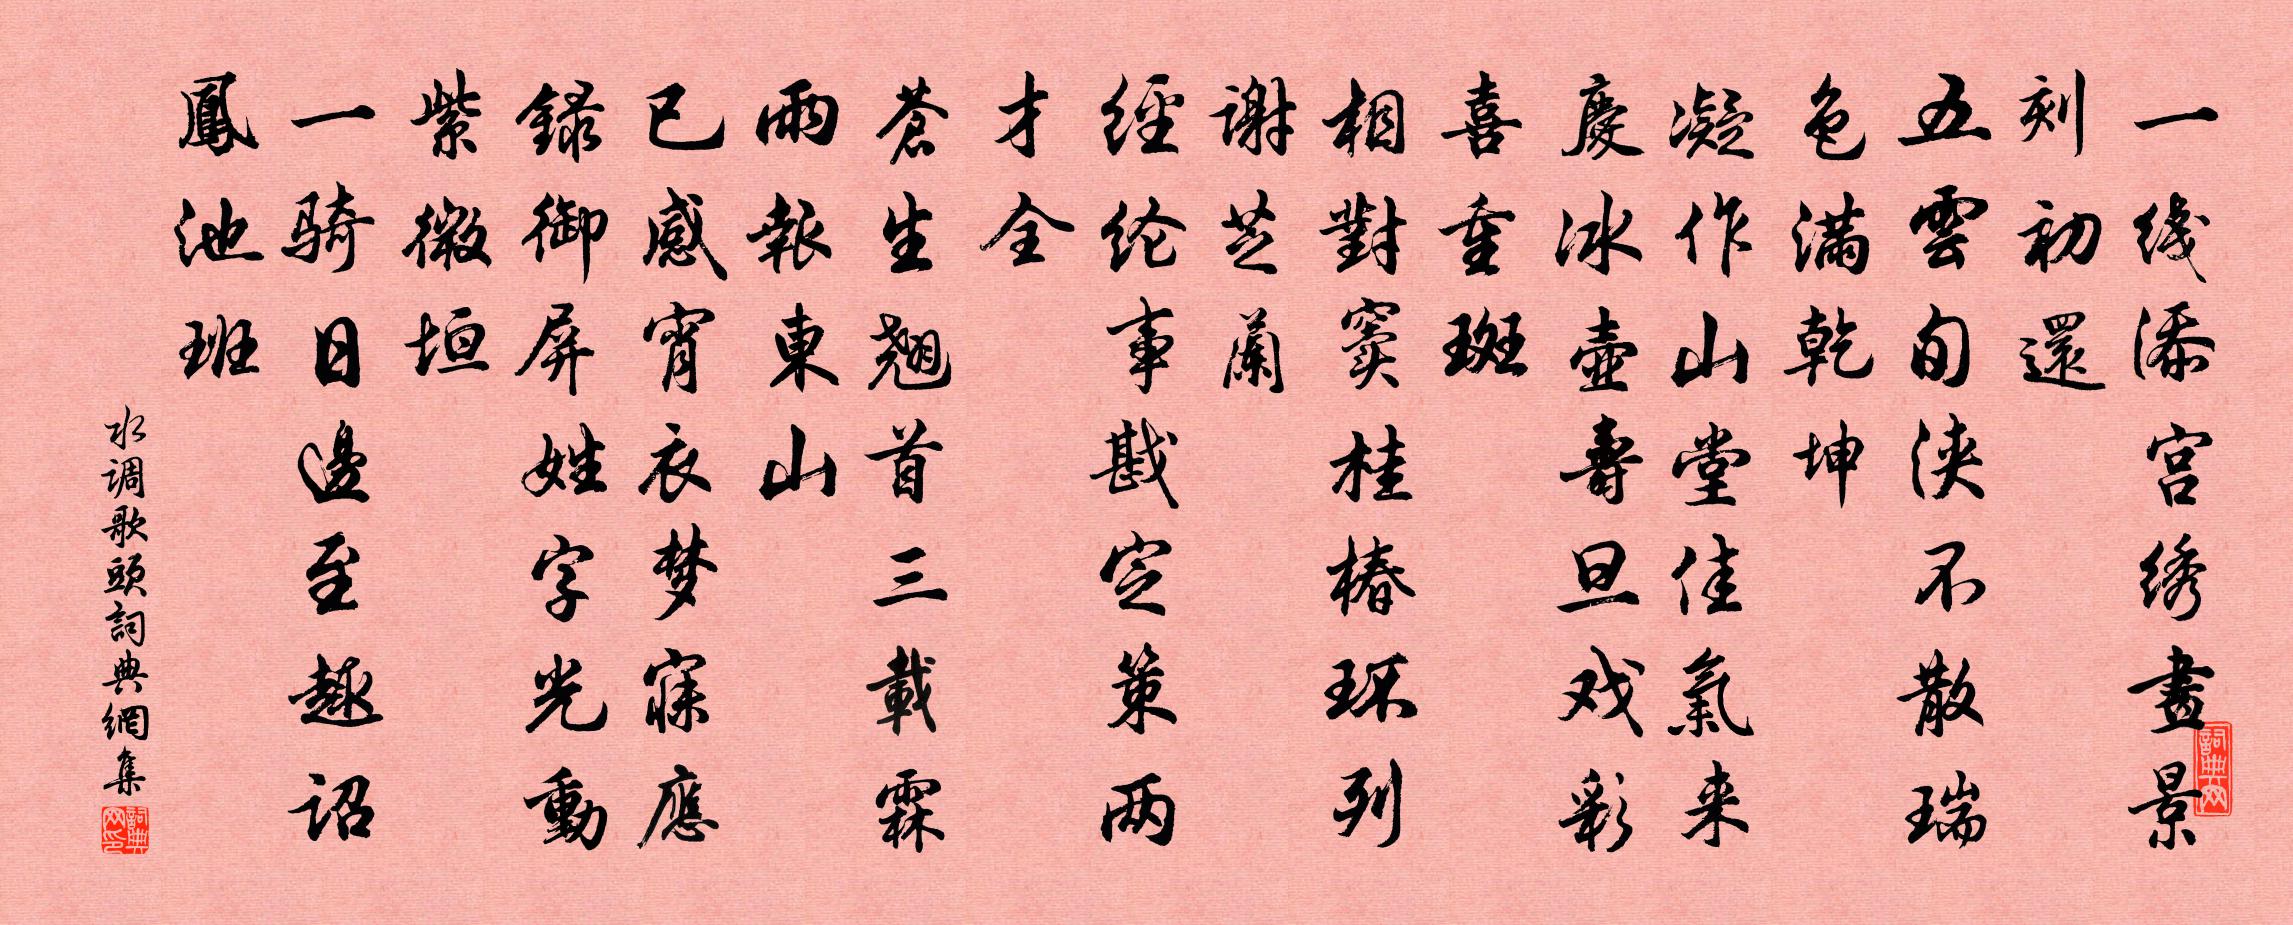 一线添宫绣畫景
刻初還
五雲旬浹不散瑞
色满乾坤
凝作山堂佳氣来
慶冰壺壽旦戏彩
喜重斑
相對窦桂椿环列
謝芝蘭
經纶事戡定策两
才全
蒼生翘首三載霖
雨報東山
已感宵衣梦寐應
錄御屏姓字光動
紫微垣
一骑日邊至趣诏
鳳池班
水调歌頭詞典網集
詞典网
詞典网印